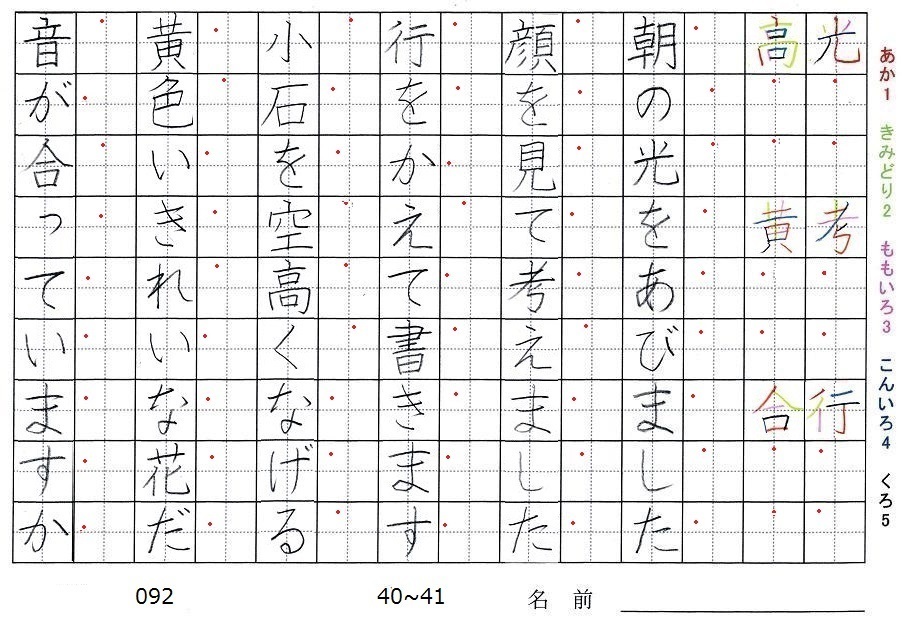 あか1 きみどり2 ももいろ3 こんいろ4 くろ5
光考行
高黄合
朝の光をあびました
顔を見て考えました
行をかえて書きます
小石を空高くなげる
黄色いきれいな花だ
音が合っていますか
092 40~41 名前